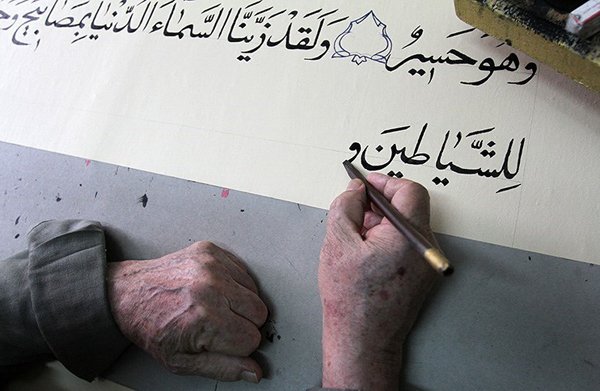 وَهُوَ حَسِيرٌ وَلَقَدْ زَيَّنَّا السَّمَاءَ الدُّنْيَا بِمَصَابِيحَ
لِلشَّيَاطِينَ و